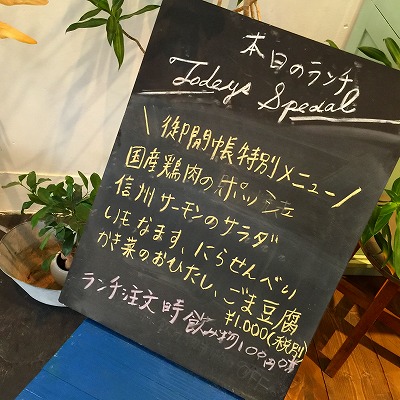 本日のランチ
Todays Special
\ 御開帳特別メニュー /
国産鶏肉のポッシェ
信州サーモンのサラダ
いもなます、にらせんべい
かき菜のおひたし、ごま豆腐
¥1.000(税別)
ランチ注文時飲み物100円